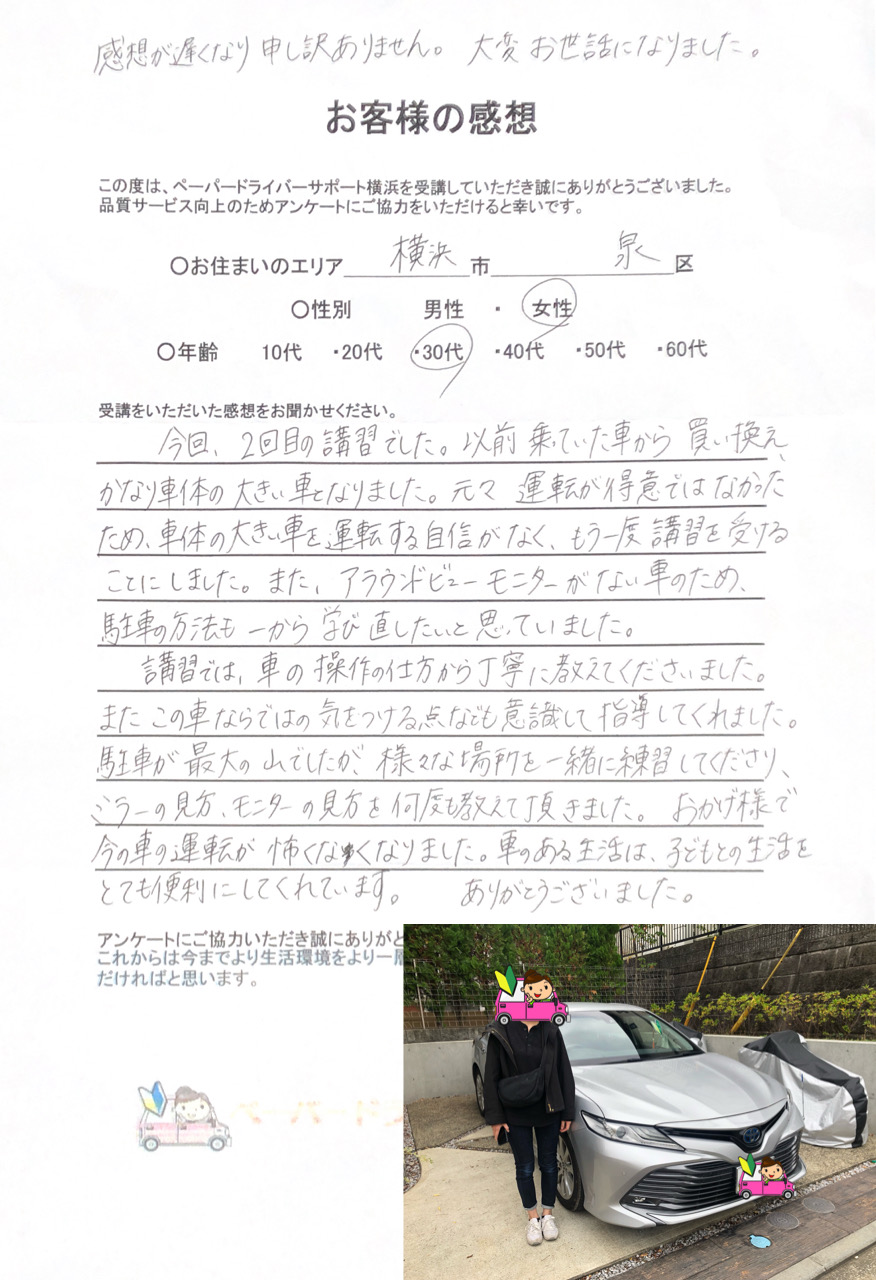 感想が遅くなり申し訳ありません。 大変お世話になりました。
お客様の感想
この度は、ペーパードライバーサポート横浜を受講していただき誠にありがとうございました。
品質サービス向上のためアンケートにご協力をいただけると幸いです。
〇お住まいのエリア 横浜 市 泉 区
〇性別 男性 ・ 女性
〇年齢 10代 ・20代 ・30代 ・40代 ・50代 ・60代
受講をいただいた感想をお聞かせください。
今回、2回目の講習でした。以前乗っていた車から買い換え、
かなり車体の大きい車となりました。元々運転が得意ではなかった
ため、車体の大きい車を運転する自信がなく、もう一度講習を受ける
ことにしました。また、アラウンドビューモニターがない車のため、
駐車の方法も一から学び直したいと思っていました。
講習では、車の操作の仕方から丁寧に教えてくださいました。
またこの車ならではの気をつける点なども意識して指導してくれました。
駐車が最大の山でしたが、様々な場所を一緒に練習してくださり、
ミラーの見方、モニターの見方を何度も教えて頂きました。おかげ様で
今の車の運転が怖くなくなりました。車のある生活は、子どもとの生活を
とても便利にしてくれています。 ありがとうございました。
アンケートにご協力いただき誠にありがと
これからは今までより生活環境をより一層
だければと思います。